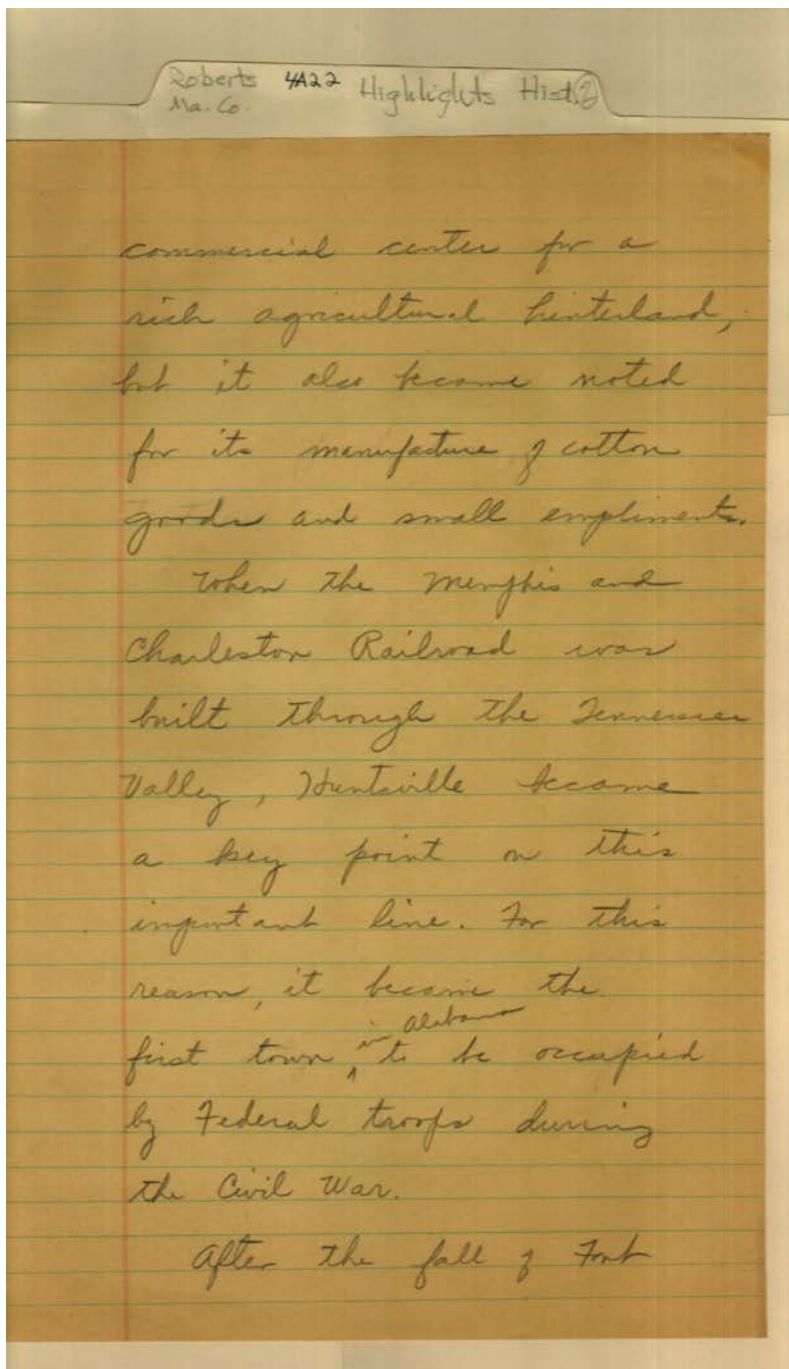 Roberts 4A22 Highlights Hist. 2
Ma. Co.
commercial center for a
rich agricultural hinterland,
but it also became noted
for its manufacture of cotton
goods and small empliments.
When the Memphis and
Charleston Railroad was
built through the Tennessee
Valley, Huntsville became
a key point on this
important line. For this
reason, it became the
in Alabama
first town ^ to be occupied
by Federal troops during
the Civil War.
After the fall of Fort